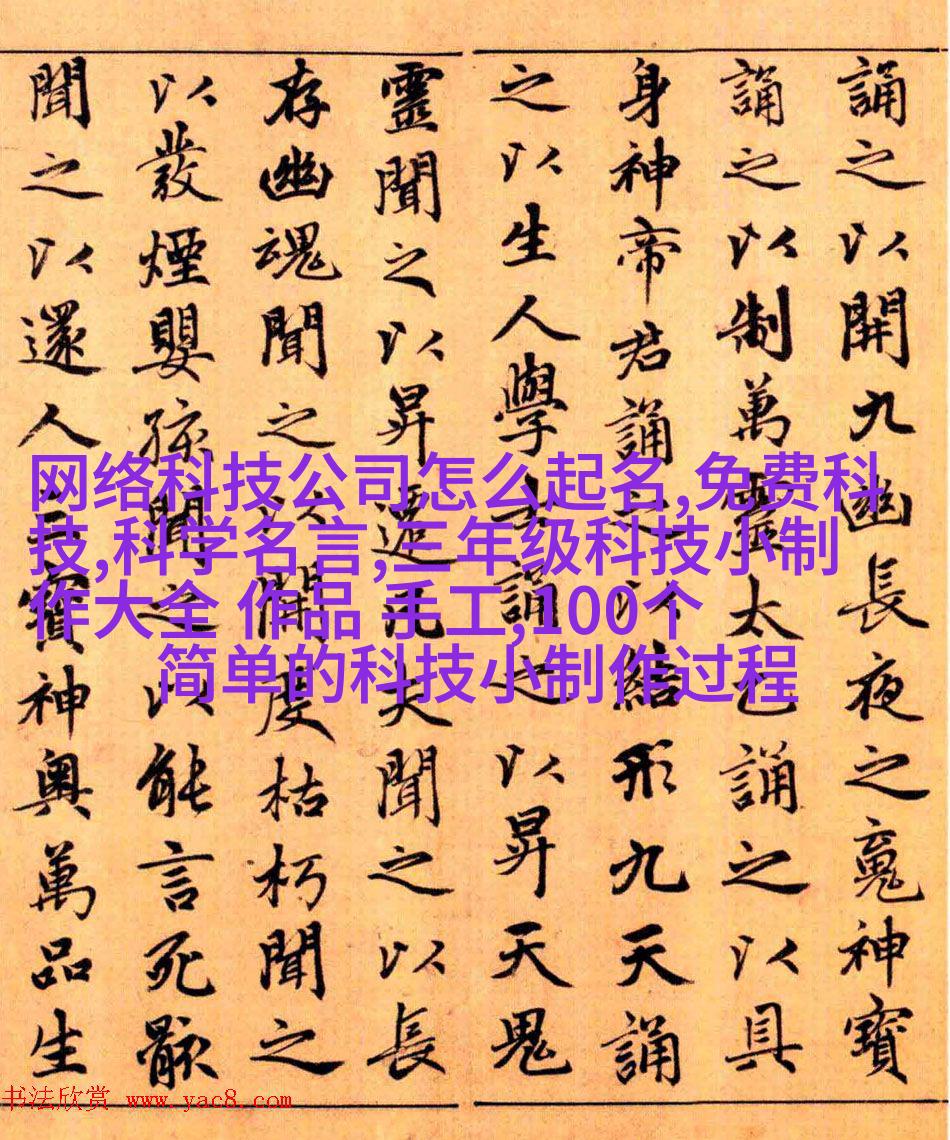 誦之以開九幽長夜之䰟神寶
誦之以制萬靈太乙誦之以具
身神帝君誦之以結形九天誦
之以生人學士誦之以昇天鬼
靈聞之以昇遷凡夫聞之以長
存幽魂聞之以開度枯朽聞之
以發煙嬰孩聞之以能言死骸
聞之以還人三寶神奧萬品生
网络科技公司怎么起名,免费科
技,科学名言,三年级科技小制
作大全 作品 手工,100个
简单的科技小制作过程
书法欣赏 www.yac8.com